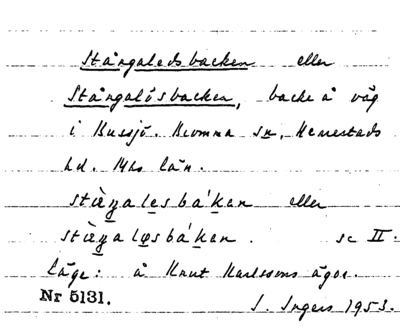 Stångaledsbacken eller
Stångalösbacken, backe å väg
i Bussjö. Bromma sn, Herrestads
hd. Mhs län.
stàŋalesbákan eller
stàŋaløsbákan. se II.
läge: å Knut Karlssons ägor.
Nr 5131. I. Ingers 1953.